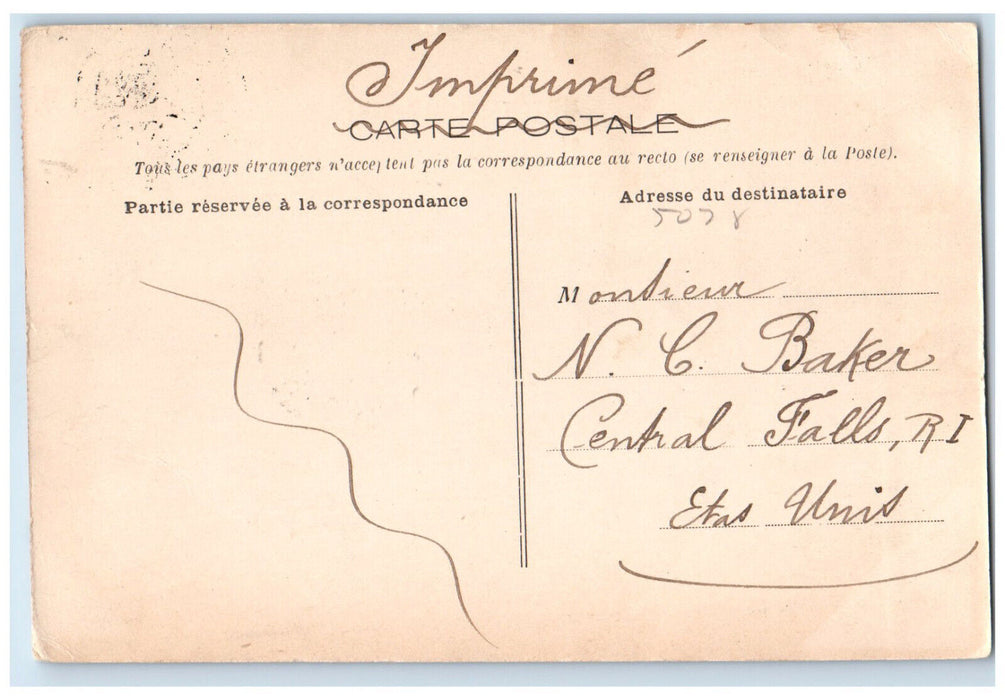 Imprimé
CARTE POSTALE
Tous les pays étrangers n'acceptent pas la correspondance au recto (se renseigner à la Poste).
Partie réservée à la correspondance
Adresse du destinataire
Monsieur
N. C. Baker
Central Falls, RI
Etas Unis